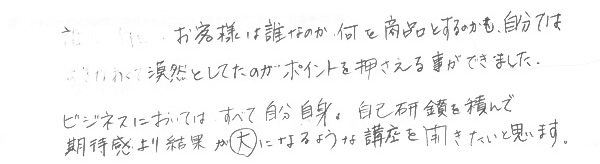 お客様は誰なのか 何を商品とするのかも、自分では
漠然としてたのがポイントを押さえる事ができました.
ビジネスにおいては すべて自分自身。自己研鎖を積んで
期待感より結果が大になるような講座を開きたいと思います。